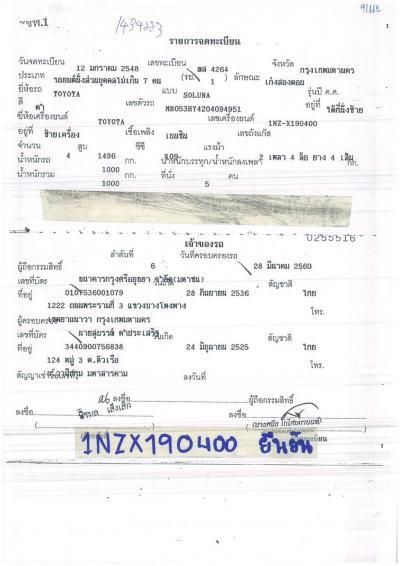 รายการจดทะเบียน
วันจดทะเบียน 12 มกราคม 2548 เลขทะเบียน ฌส 4264 จังหวัด กรุงเทพมหานคร
ประเภท รถยนต์นั่งส่วนบุคคลไม่เกิน 7 คน (รย. 1 ) ลักษณะ เก๋งสองตอน
ยี่ห้อรถ TOYOTA แบบ SOLUNA รุ่นปี ค.ศ.
สี ดำ เลขตัวรถ MR053HY4204094951 อยู่ที่ ใต้ที่นั่งซ้าย
ยี่ห้อเครื่องยนต์ TOYOTA เลขเครื่องยนต์ 1NZ-X190400
อยู่ที่ ซ้ายเครื่อง เชื้อเพลิง เบนซิน เลขถังแก๊ส
จำนวน 4 สูบ 1496 ซีซี 109 แรงม้า 2 เพลา 4 ล้อ ยาง 4 เส้น
น้ำหนักรถ 1000 กก. น้ำหนักบรรทุก/น้ำหนักลงเพลา กก.
น้ำหนักรวม 1000 กก. ที่นั่ง 5 คน
เจ้าของรถ
ลำดับที่ 6 วันที่ครอบครองรถ 28 มีนาคม 2560
ผู้ถือกรรมสิทธิ์ ธนาคารกรุงศรีอยุธยา จำกัด(มหาชน)
เลขที่บัตร 0107536001079 28 กันยายน 2536 สัญชาติ ไทย
ที่อยู่ 1222 ถนนพระรามที่ 3 แขวงบางโพงพาง โทร.
เขตยานนาวา กรุงเทพมหานคร
ผู้ครอบครอง
เลขที่บัตร 3440900756838 วันเกิด 24 มิถุนายน 2525 สัญชาติ ไทย
ที่อยู่ 124 หมู่ 3 ต.ดิวเรือ โทร.
สัญญาเช่าซื้อเลขที่ มหาสารคาม ลงวันที่
ผู้ถือกรรมสิทธิ์
ลงชื่อ
ลงชื่อ
1NZX190400 ยืนยัน